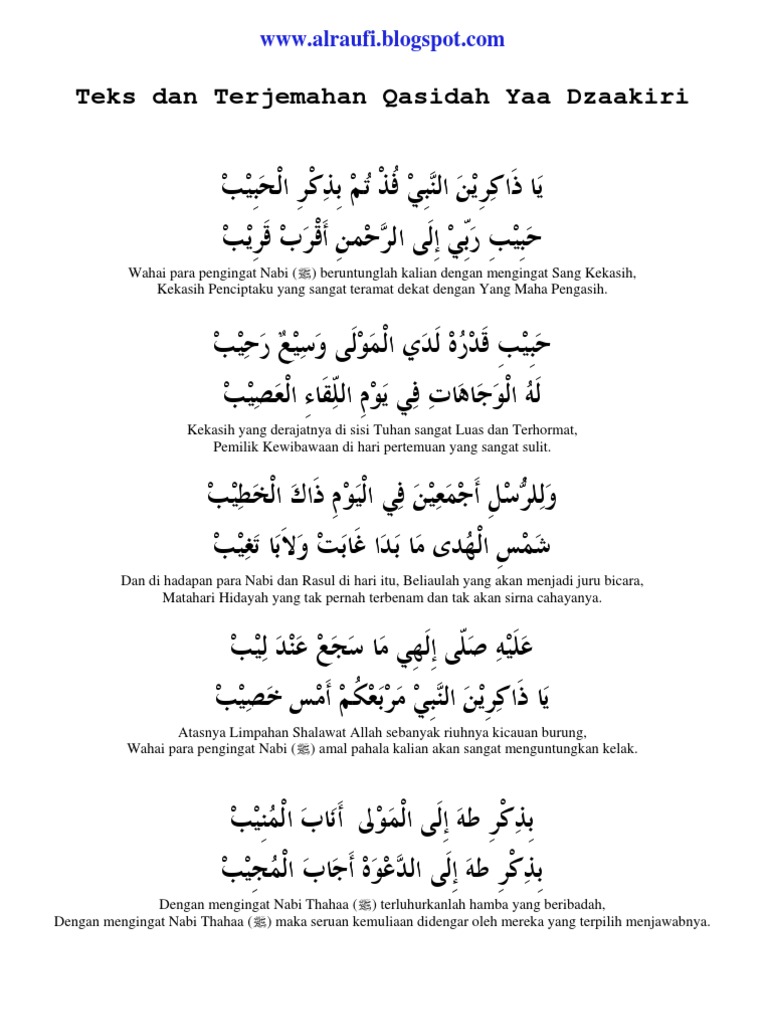 www.alraufi.blogspot.com
Teks dan Terjemahan Qasidah Yaa Dzaakiri
يَا ذَاكِرِيْنَ النَّبِيْ فُذْ تُمْ بِذِكْرِ الْحَبِيْبْ
حَبِيْبِ رَبِّيْ إِلَى الرَّحْمنِ أَقْرَبْ قَرِيْبْ
Wahai para pengingat Nabi (ﷺ) beruntunglah kalian dengan mengingat Sang Kekasih,
Kekasih Penciptaku yang sangat teramat dekat dengan Yang Maha Pengasih.
حَبِيْبِ قَدْرُهْ لَدَي الْمَوْلَى وَسِيْعٌ رَحِيْبْ
لَهُ الْوَجَاهَاتِ فِي يَوْمِ اللِّقَاءِ الْعَصِيْبْ
Kekasih yang derajatnya di sisi Tuhan sangat Luas dan Terhormat,
Pemilik Kewibawaan di hari pertemuan yang sangat sulit.
وَلِلرُّسْلِ أَجْمَعِيْنَ فِي الْيَوْمِ ذَاكَ الْخَطِيْبْ
شَمْسِ الْهُدى مَا بَدَا غَابَتْ وَلاَبَا تَغِيْبْ
Dan di hadapan para Nabi dan Rasul di hari itu, Beliaulah yang akan menjadi juru bicara,
Matahari Hidayah yang tak pernah terbenam dan tak akan sirna cahayanya.
عَلَيْهِ صَلّى إِلَهِي مَا سَجَعْ عَنْدَ لِيْبْ
يَا ذَاكِرِيْنَ النَّبِيْ مَرْبَعْكُمْ أَمْس خَصِيْبْ
Atasnya Limpahan Shalawat Allah sebanyak riuhnya kicauan burung,
Wahai para pengingat Nabi (ﷺ) amal pahala kalian akan sangat menguntungkan kelak.
بِذِكْرِ طهَ إِلَى الْمَوْلى أَنَابَ الْمُنِيْبْ
بِذِكْرِ طهَ إِلَى الدَّعْوَهْ أَجَابَ الْمُجِيْبْ
Dengan mengingat Nabi Thahaa (ﷺ) terluhurkanlah hamba yang beribadah,
Dengan mengingat Nabi Thahaa (ﷺ) maka seruan kemuliaan didengar oleh mereka yang terpilih menjawabnya.